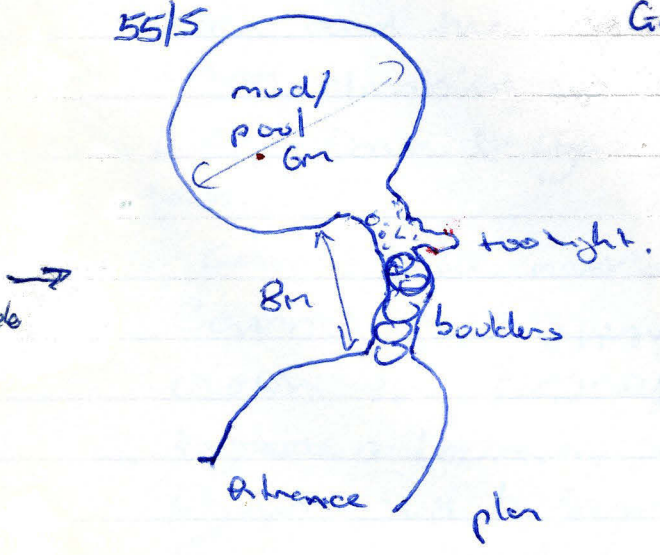 55/5
G
mud/
pool
6m
too tight.
8m
boulders
Entrance
plan